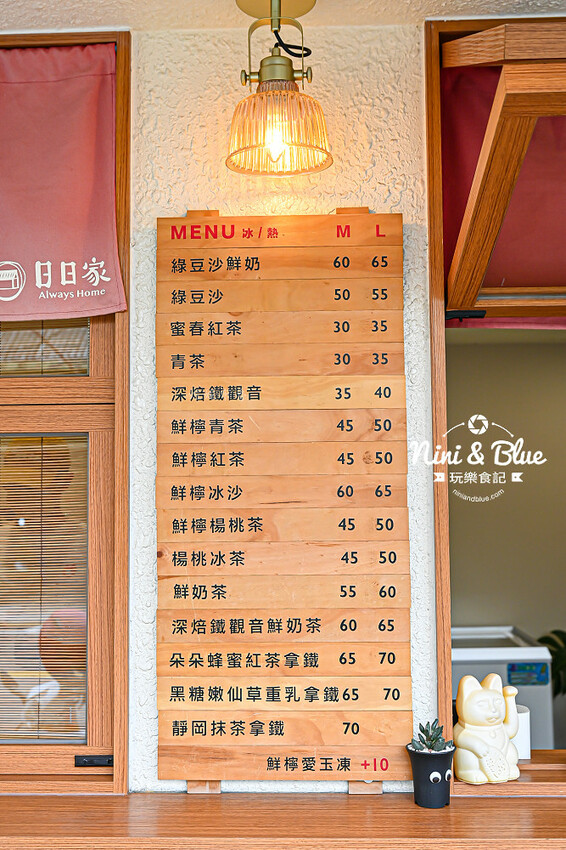 日日家
Always Home
MENU 冰/熱 M L
綠豆沙鮮奶 60 65
綠豆沙 50 55
蜜春紅茶 30 35
青茶 30 35
深焙鐵觀音 35 40
鮮檸青茶 45 50
鮮檸紅茶 45 50
鮮檸冰沙 60 65
鮮檸楊桃茶 45 50
楊桃冰茶 45 50
鮮奶茶 55 60
深焙鐵觀音鮮奶茶 60 65
朵朵蜂蜜紅茶拿鐵 65 70
黑糖嫩仙草重乳拿鐵 65 70
靜岡抹茶拿鐵 70
鮮檸愛玉凍 +10
Nini & Blue
玩樂食記
niniandblue.com